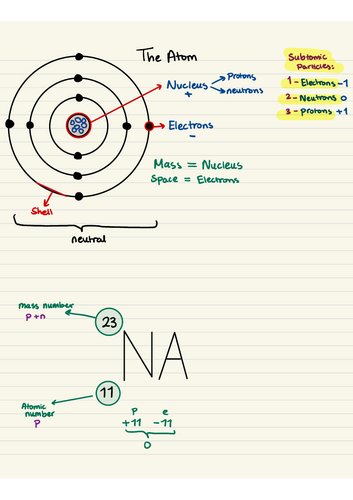 The Atom
Subtomic
Particles:
1 - Electrons -1
2 - Neutrons 0
3 - Protons +1
Nucleus
+
Protons
neutrons
Electrons
-
Mass = Nucleus
Space = Electrons
Shell
neutral
mass number
P+n
23
NA
11
Atomic
number
P
P e
+11 -11
0